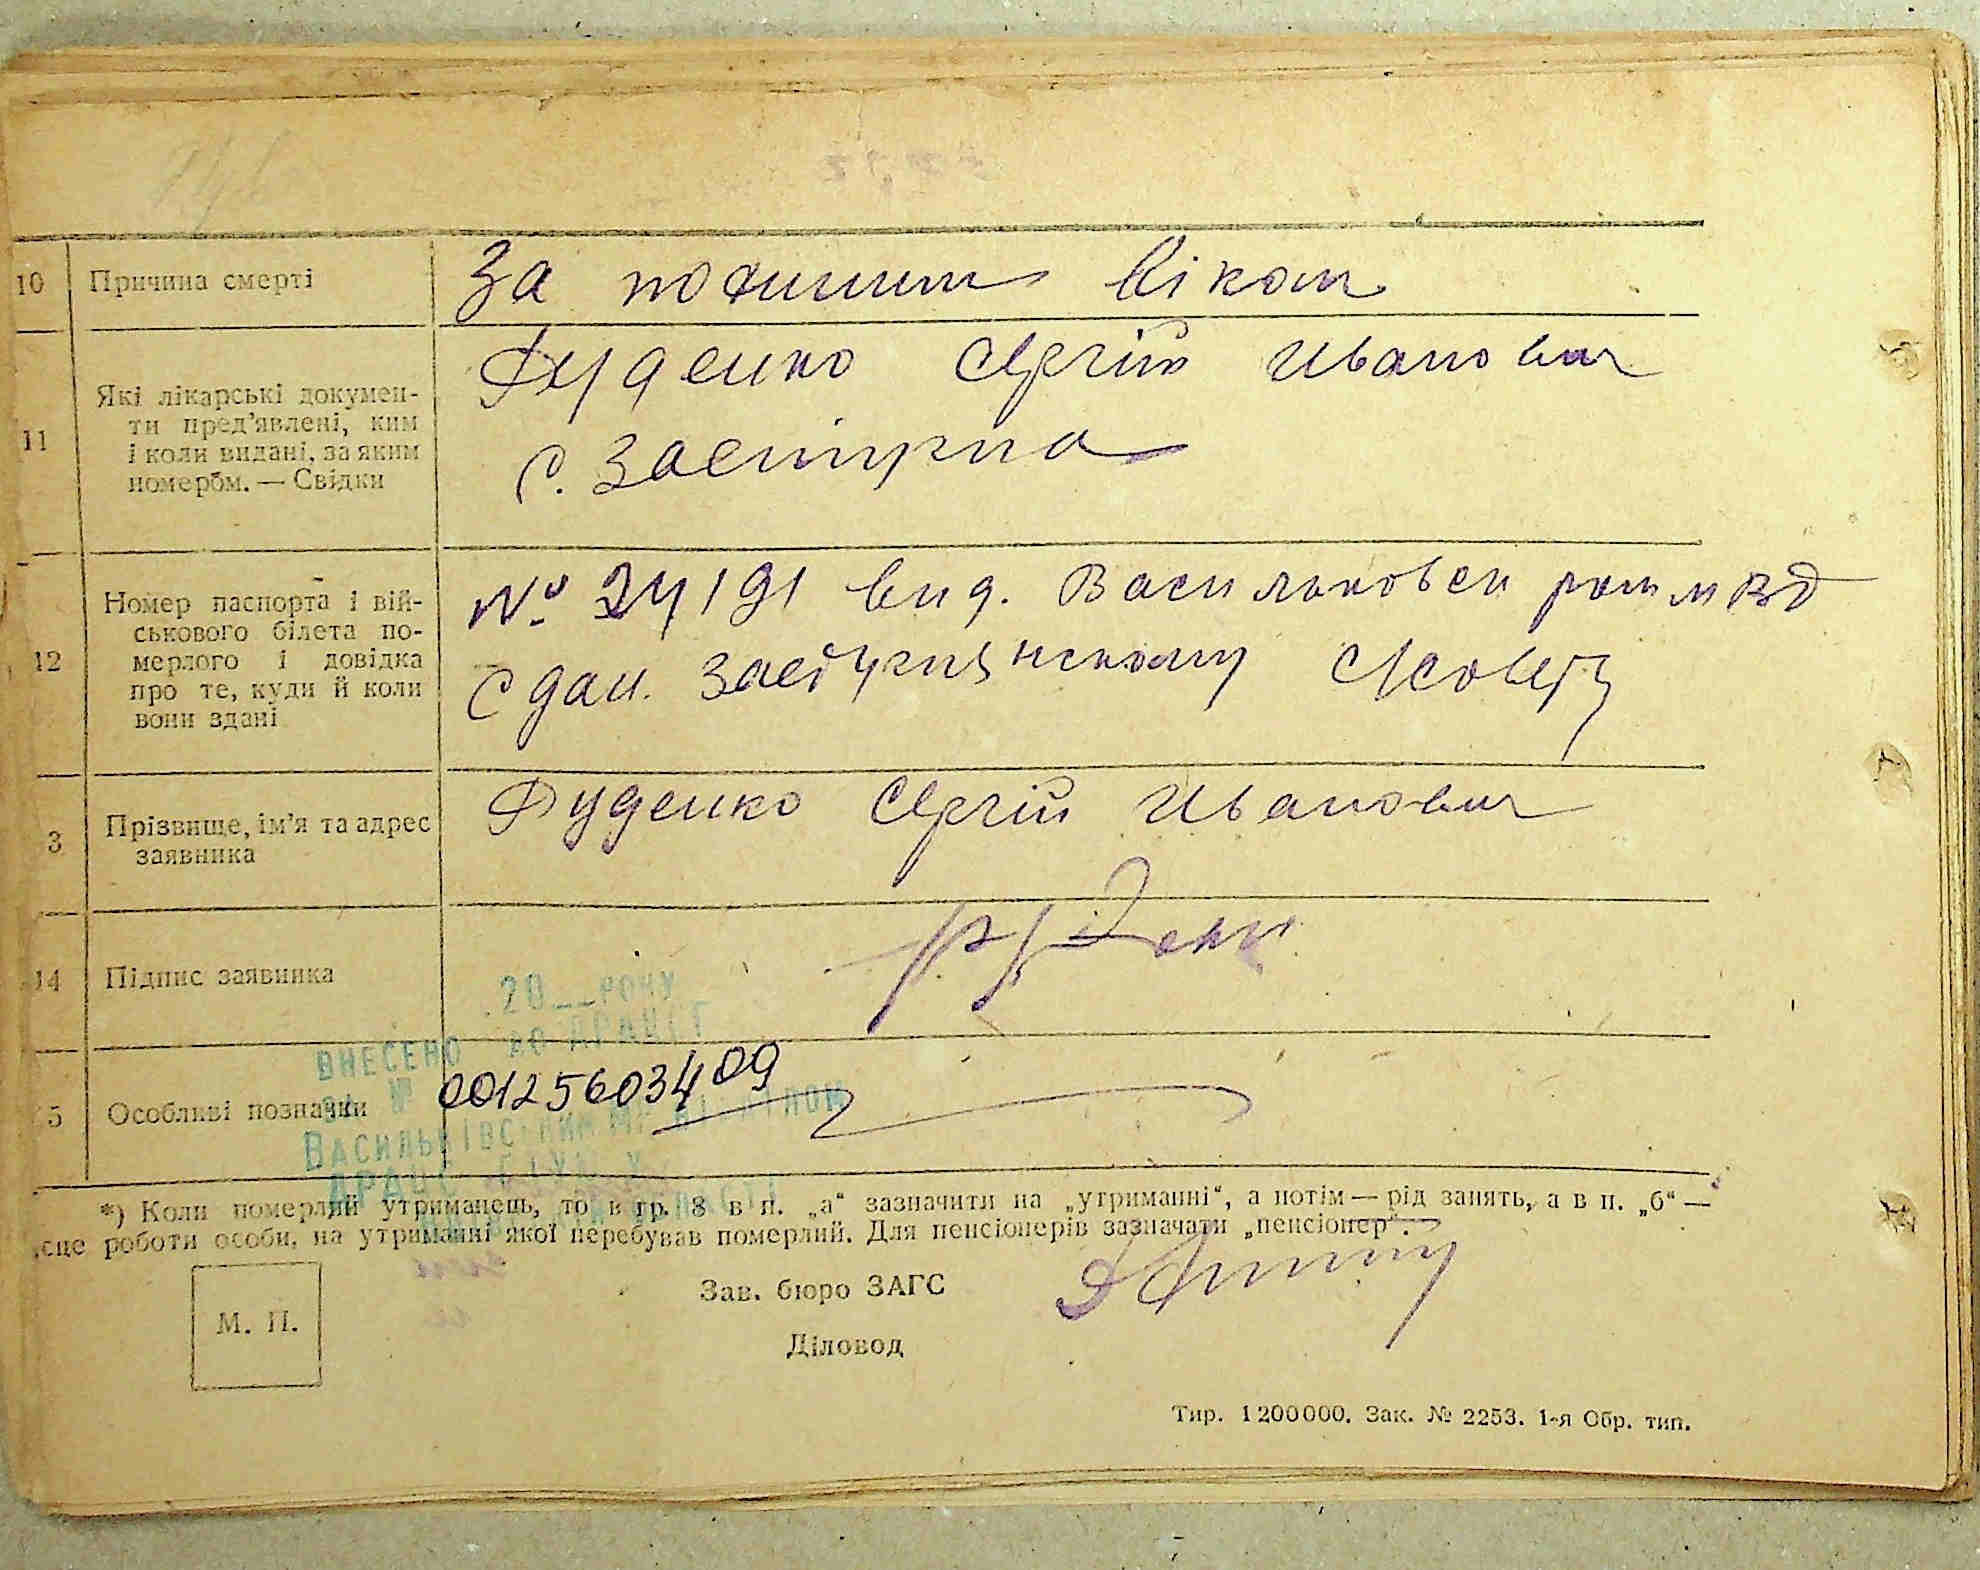 10 Причина смерті За похилим віком
11 Які лікарські документи пред'явлені, ким і коли видані, за яким номером. — Свідки
Руденко Сергій Иванович
с. Застугна
12 Номер паспорта і військового білета померлого і довідка про те, куди й коли вони здані
№ 24191 вид. Васильковси рай МВД
Сдан. Застугнянскому с/совету
3 Прізвище, ім'я та адрес заявника
Руденко Сергій Иванович
14 Підпис заявника
20__РОКУ
ВНЕСЕНО ДО ДРАЦСГ
ЗА № 00125603409
5 Особливі позначки
ВАСИЛЬКІВСЬКИМ
*) Коли померлий утриманець, то в гр. 8 в п. „а“ зазначити на „утриманні“, а потім — рід занять, а в п. „б“ —
сце роботи особи, на утриманні якої перебував померлий. Для пенсіонерів зазначати „пенсіонер“.
М. П.
Зав. бюро ЗАГС
Діловод
Тир. 1200000. Зак. № 2253. 1-я Обр. тип.